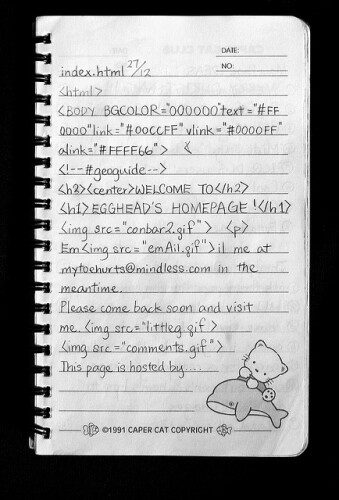 DATE:
NO:
index.html 27/12
<html>
<BODY BGCOLOR="000000" text="#FF
0000" link="#00CCFF" vlink="#0000FF"
alink="#FFFF66"> <
<!--#geoguide-->
<h2><center>WELCOME TO</h2>
<h1>EGGHEAD'S HOMEPAGE!</h1>
<img src="conbar2.gif"> <p>
Em<img src="emAil.gif">il me at
mytoehurts@mindless.com in the
meantime.
Please come back soon and visit
me. <img src="littleg.gif>
<img src="comments.gif">
This page is hosted by....
©1991 CAPER CAT COPYRIGHT